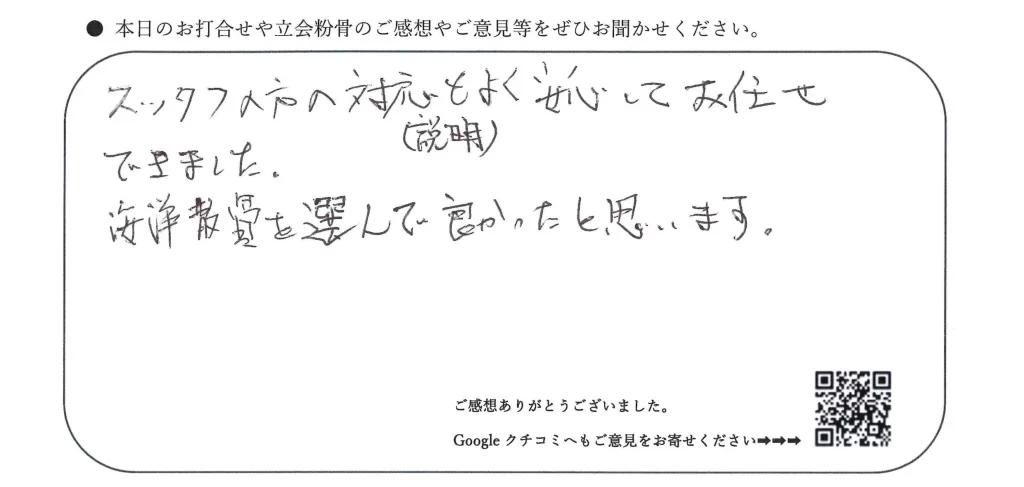 ● 本日のお打合せや立会粉骨のご感想やご意見等をぜひお聞かせください。
スッタフの方の対応もよく安心してお任せ
(説明)
できました。
海洋散骨を選んで良かったと思います。
ご感想ありがとうございました。
Googleクチコミへもご意見をお寄せください➡➡➡